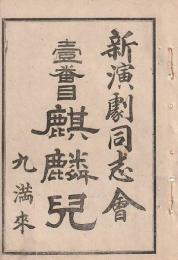 新演劇同志會
壹番目麒麟兒
九滿來